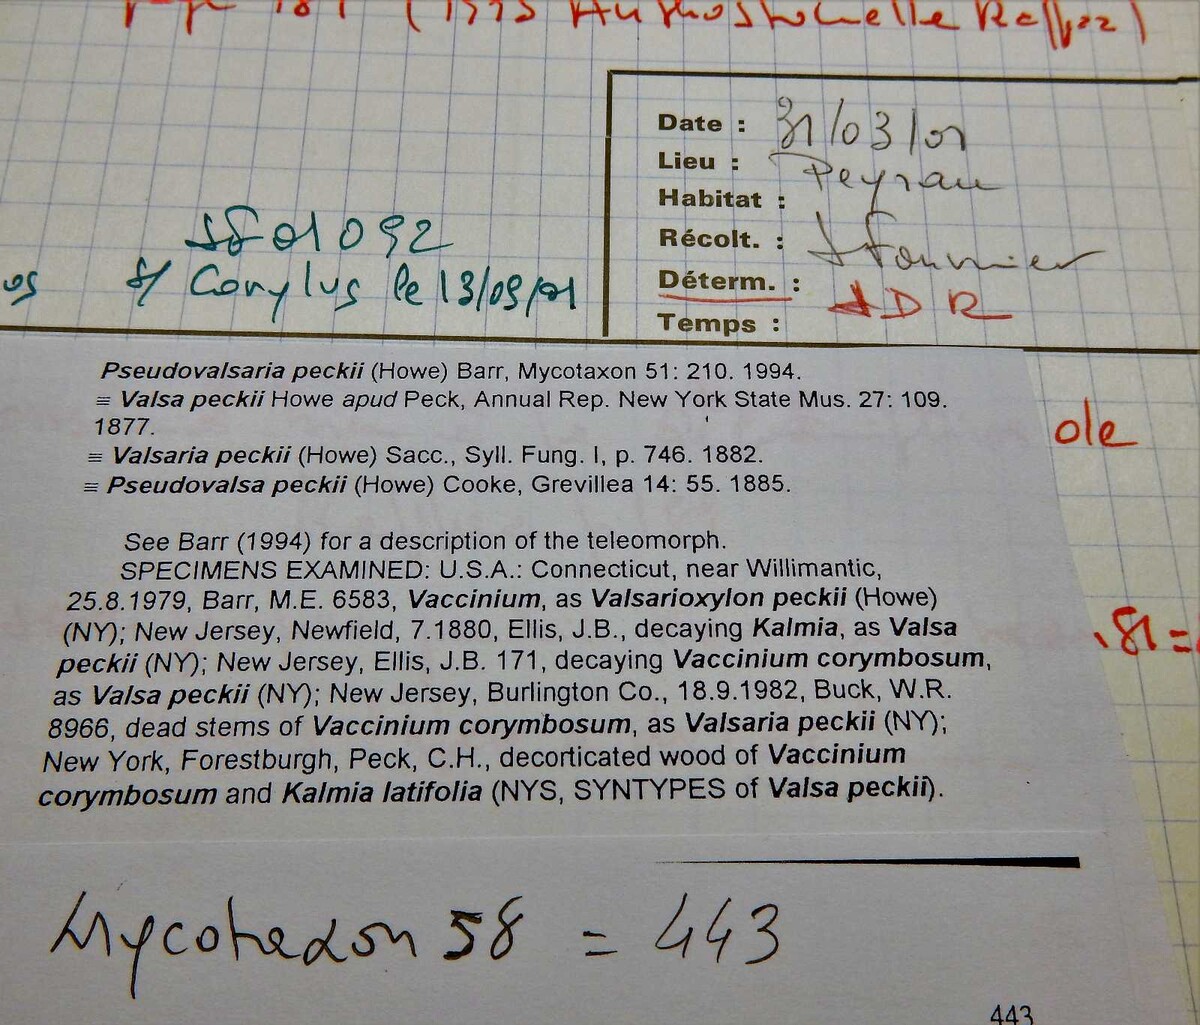 Date : 31/03/01
Lieu : Peyrau
Habitat :
Récolt. : J Fournier
Déterm. : ADR
Temps :
JF 01 092
s/ Corylus le 13/09/01
Pseudovalsaria peckii (Howe) Barr, Mycotaxon 51: 210. 1994.
≡ Valsa peckii Howe apud Peck, Annual Rep. New York State Mus. 27: 109.
1877.
≡ Valsaria peckii (Howe) Sacc., Syll. Fung. I, p. 746. 1882.
≡ Pseudovalsa peckii (Howe) Cooke, Grevillea 14: 55. 1885.
See Barr (1994) for a description of the teleomorph.
SPECIMENS EXAMINED: U.S.A.: Connecticut, near Willimantic,
25.8.1979, Barr, M.E. 6583, Vaccinium, as Valsarioxylon peckii (Howe)
(NY); New Jersey, Newfield, 7.1880, Ellis, J.B., decaying Kalmia, as Valsa
peckii (NY); New Jersey, Ellis, J.B. 171, decaying Vaccinium corymbosum,
as Valsa peckii (NY); New Jersey, Burlington Co., 18.9.1982, Buck, W.R.
8966, dead stems of Vaccinium corymbosum, as Valsaria peckii (NY);
New York, Forestburgh, Peck, C.H., decorticated wood of Vaccinium
corymbosum and Kalmia latifolia (NYS, SYNTYPES of Valsa peckii).
ole
81=
Mycotaxon 58 = 443
443